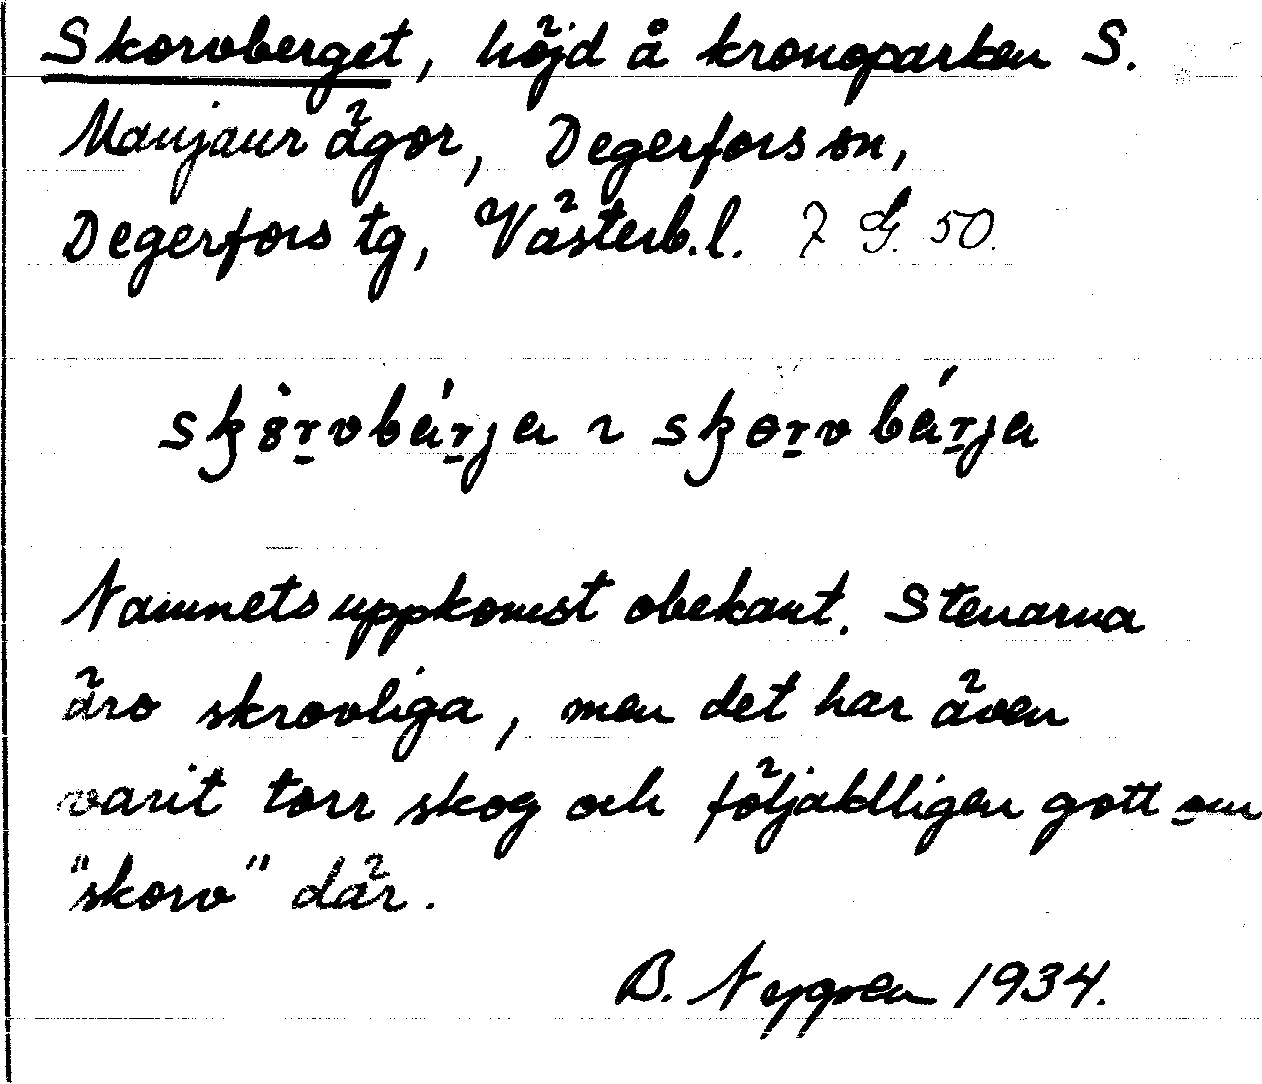 Skorvberget, höjd å kronoparken S.
Manjaur ägor, Degerfors sn,
Degerfors tg, Västerb.l. 7 G. 50.
Namnets uppkomst obekant. Stenarna
äro skrovliga, men det har även
varit torr skog och följaktligen gott om
"skorv" där.
B. Nygren 1934.